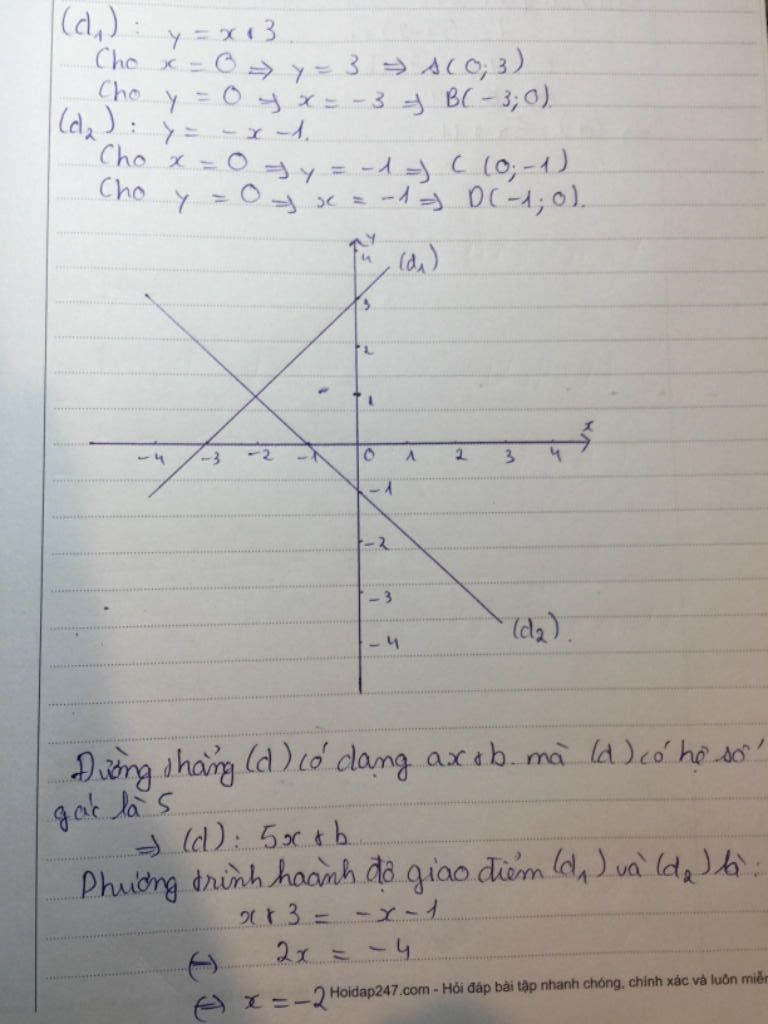 (d₁) : y = x + 3
Cho x = 0 => y = 3 => A(0; 3)
Cho y = 0 => x = -3 => B(-3; 0)
(d₂) : y = -x - 1.
Cho x = 0 => y = -1 => C (0; -1)
Cho y = 0 => x = -1 => D(-1; 0).
y
4
(d₁)
3
2
1
x
-4 -3 -2 -1 0 1 2 3 4
-1
-2
-3
(d₂).
-4
Đường thẳng (d) có dạng ax + b. mà (d) có hệ số
góc là 5
=> (d) : 5x + b
Phương trình hoành độ giao điểm (d₁) và (d₂) là :
x + 3 = -x - 1
<=> 2x = -4
<=> x = -2
Hoidap247.com - Hỏi đáp bài tập nhanh chóng, chính xác và luôn miễn